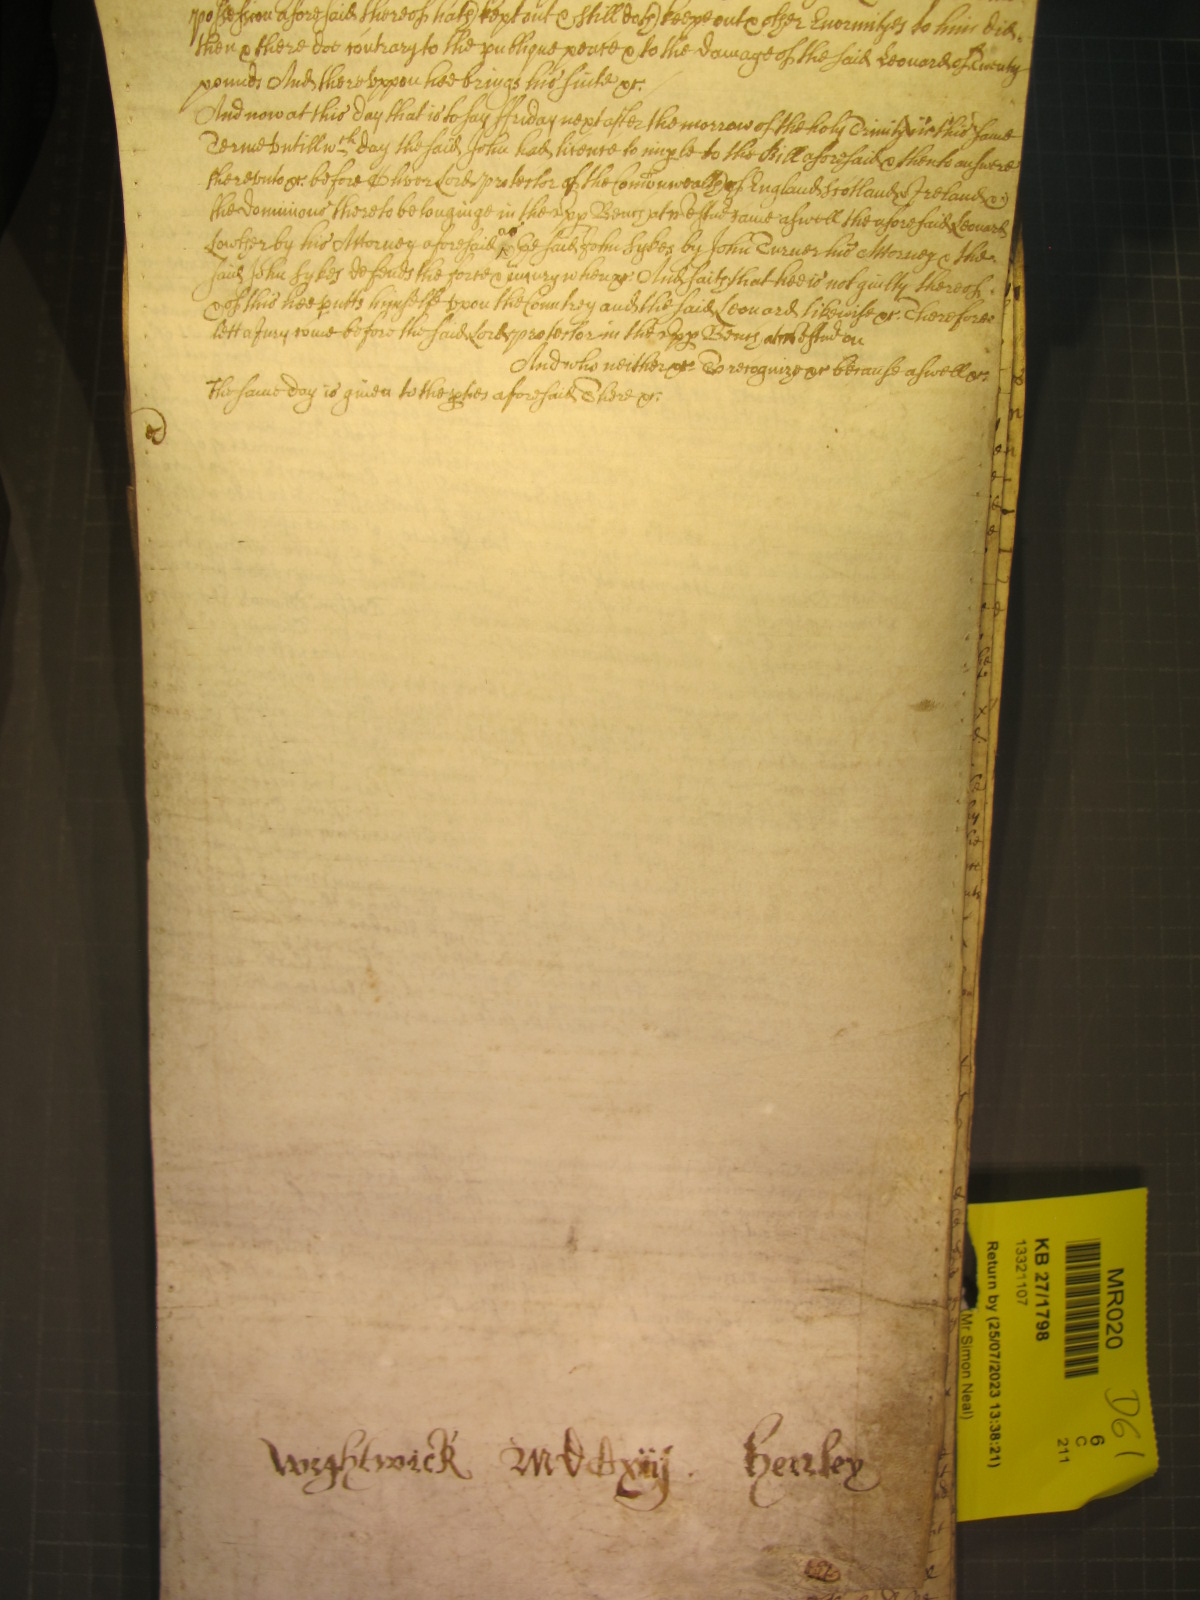 possession aforesaid thereof hath kept out & still doth keepe out & other Enormityes to him did
then & there doe contrary to the publique peace & to the damage of the said Leonard of Twenty
pounds And thereuppon hee brings his suite &c.
And now at this day that is to say ffriday next after the morrow of the holy Trinity in this same
Terme untill wch day the said John had licence to imple to the Bill aforesaid & then to answere
thereunto &c. before Oliver Lord protector of the Comonwealth of England Scotland & Ireland &
the dominions thereto belonginge in the upp Bench at Westmr came aswell the aforesaid Leonard
Lowther by his Attorney aforesaid as the said John Sykes by John Turner his Attorney & the
said John Sykes defends the force & iniury when &c. And saith that hee is not guilty thereof
& of this hee putts himselfe upon the Countrey and the said Leonard likewise &c. Therefore
lett a Jury come before the said Lord protector in the upp Bench at Westmr on
And who neither &c. To recognize &c because aswell &c.
the same day is given to the ptes aforesaid There &c.
Wightwick MDCCxiij. Henley
MR020
KB 27/1798
13321107
Return by (25/07/2023 13:38:21)
(Mr Simon Neal)
D61
6
C
211